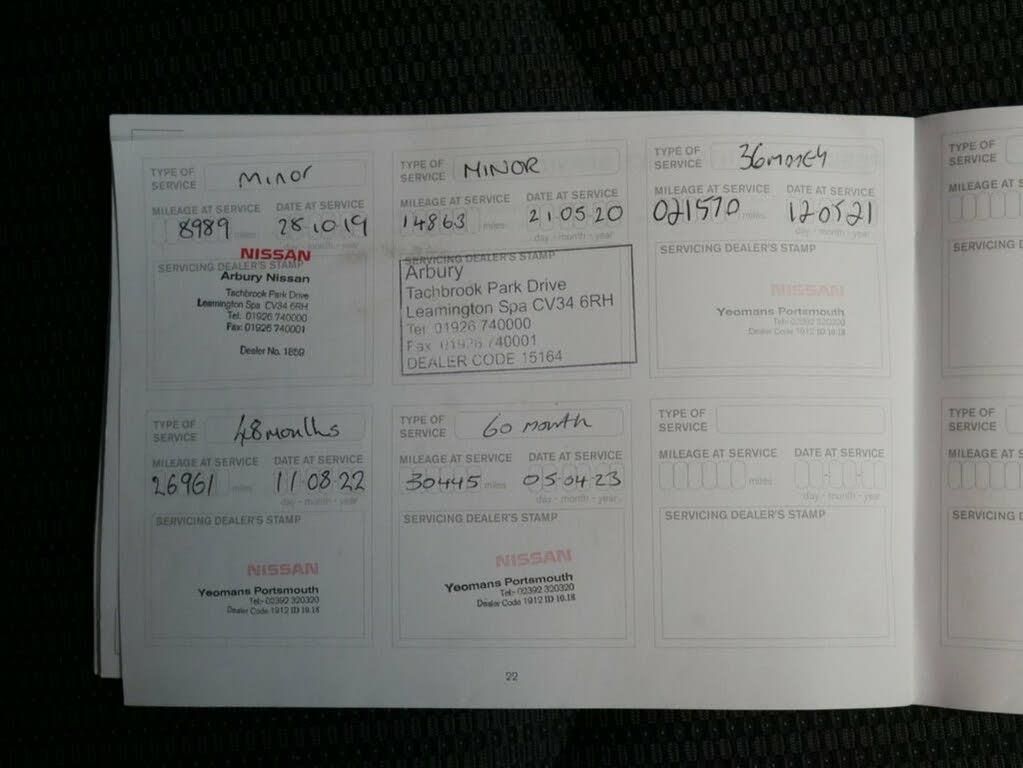 TYPE OF SERVICE Minor
MILEAGE AT SERVICE DATE AT SERVICE
8989 miles 28.10.19
day - month - year
SERVICING DEALER'S STAMP
NISSAN
Arbury Nissan
Tachbrook Park Drive
Leamington Spa CV34 6RH
Tel: 01926 740000
Fax: 01926 740001
Dealer No. 1859
TYPE OF SERVICE MINOR
MILEAGE AT SERVICE DATE AT SERVICE
14863 miles 21.05.20
day - month - year
SERVICING DEALER'S STAMP
Arbury
Tachbrook Park Drive
Leamington Spa CV34 6RH
Tel: 01926 740000
Fax 01926 740001
DEALER CODE 15164
TYPE OF SERVICE 36month
MILEAGE AT SERVICE DATE AT SERVICE
021570 miles 120521
day - month - year
SERVICING DEALER'S STAMP
NISSAN
Yeomans Portsmouth
Tel:- 02392 320320
Dealer Code 1912 ID 10.18
TYPE OF SERVICE 48months
MILEAGE AT SERVICE DATE AT SERVICE
26961 miles 11.08.22
day - month - year
SERVICING DEALER'S STAMP
NISSAN
Yeomans Portsmouth
Tel:- 02392 320320
Dealer Code 1912 ID 10.18
TYPE OF SERVICE 60 month
MILEAGE AT SERVICE DATE AT SERVICE
30445 miles 05.04.23
day - month - year
SERVICING DEALER'S STAMP
NISSAN
Yeomans Portsmouth
Tel:- 02392 320320
Dealer Code 1912 ID 10.18
TYPE OF SERVICE
MILEAGE AT SERVICE DATE AT SERVICE
miles
day - month - year
SERVICING DEALER'S STAMP
22
TYPE OF
SERVICE
MILEAGE AT
SERVICING D
TYPE OF
SERVICE
MILEAGE AT S
SERVICING D